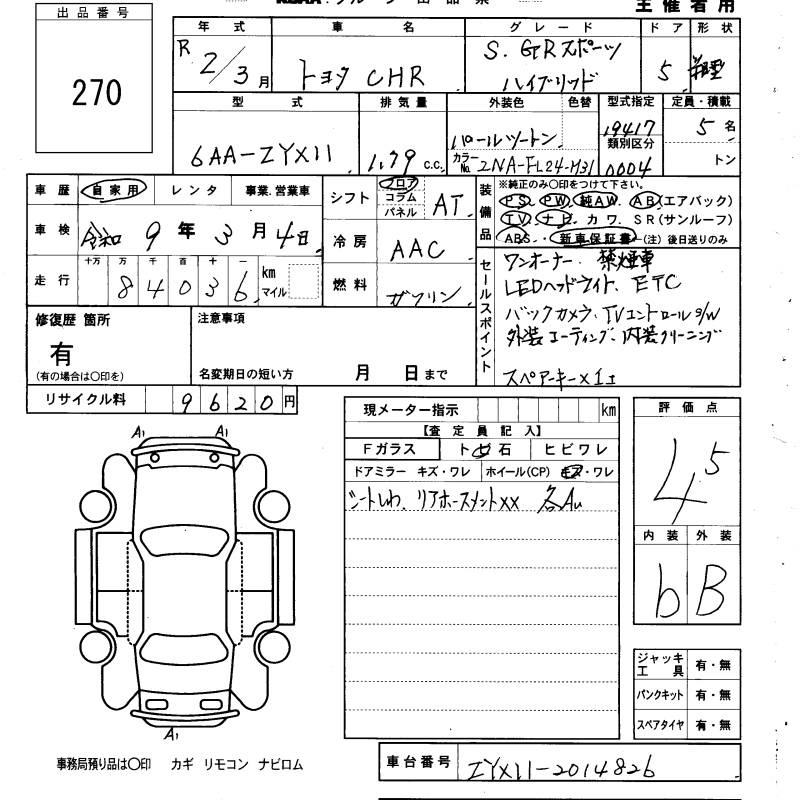 主催者用
出品番号
270
年式
車名
グレード
ドア
形状
R 2/3月
トヨタ CHR
S. GRスポーツ
ハイブリッド
5
型式
排気量
外装色
色替
型式指定
定員・積載
6AA-ZYX11
1.79 c.c.
パールツートン
カラーNo. 2NA-FL24-M31
19417
類別区分
0004
5名
トン
車歴
自家用
レンタ
事業.営業車
シフト
フロア
コラム
パネル
AT
装備品
※純正のみ〇印をつけて下さい。
PS. PW. 純AW. AB(エアバック)
TV. ナビ カワ. SR(サンルーフ)
ABS. 新車保証書 (注)後日送りのみ
車検
令和 9年 3月 4日
冷房
AAC
走行
十万 万 千 百 十 一
84036
km
マイル
燃料
ガソリン
セールスポイント
ワンオーナー. 禁煙車
LEDヘッドライト. ETC
バックカメラ. TVコントロールS/W
外装コーティング. 内装クリーニング
スペアーキー×1コ
修復歴 箇所
有
(有の場合は〇印を)
注意事項
名変期日の短い方
月 日まで
リサイクル料
9620円
現メーター指示
km
【査定員記入】
Fガラス
トビ石
ヒビワレ
ドアミラー キズ・ワレ
ホイール(CP) キズ・ワレ
シートしわ. リアホースメントXX 各Au
評価点
4.5
内装
外装
b
B
A1 A1
A1
ジャッキ工具 有・無
パンクキット 有・無
スペアタイヤ 有・無
事務局預り品は〇印 カギ リモコン ナビロム
車台番号
ZYX11-2014826